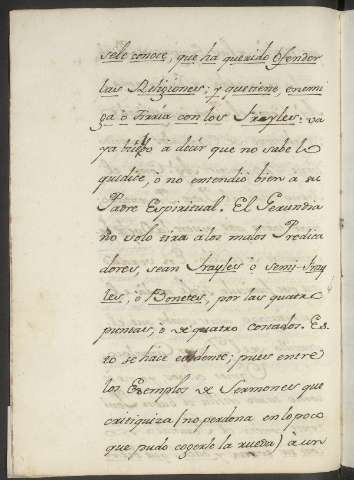 selo conoce, que ha querido ofender
las Religiones; y que tiene enemi
ga ò tirria con los Frayles: va
ya à decir que no sabe lo
quidite, ò no entendió bien a su
Padre Espiritual. El Gerundio
no solo tira à los malos Predica
dores, sean Frayles ò semi-fray
les, ò Bonetes, por las quatro
puntas, ò de quatro costados. Es
to se hace evidente; pues entre
los Exemplos de Sermones que
critiquiza (no perdona en lo poco
que pudo cogerle la rueda) à un